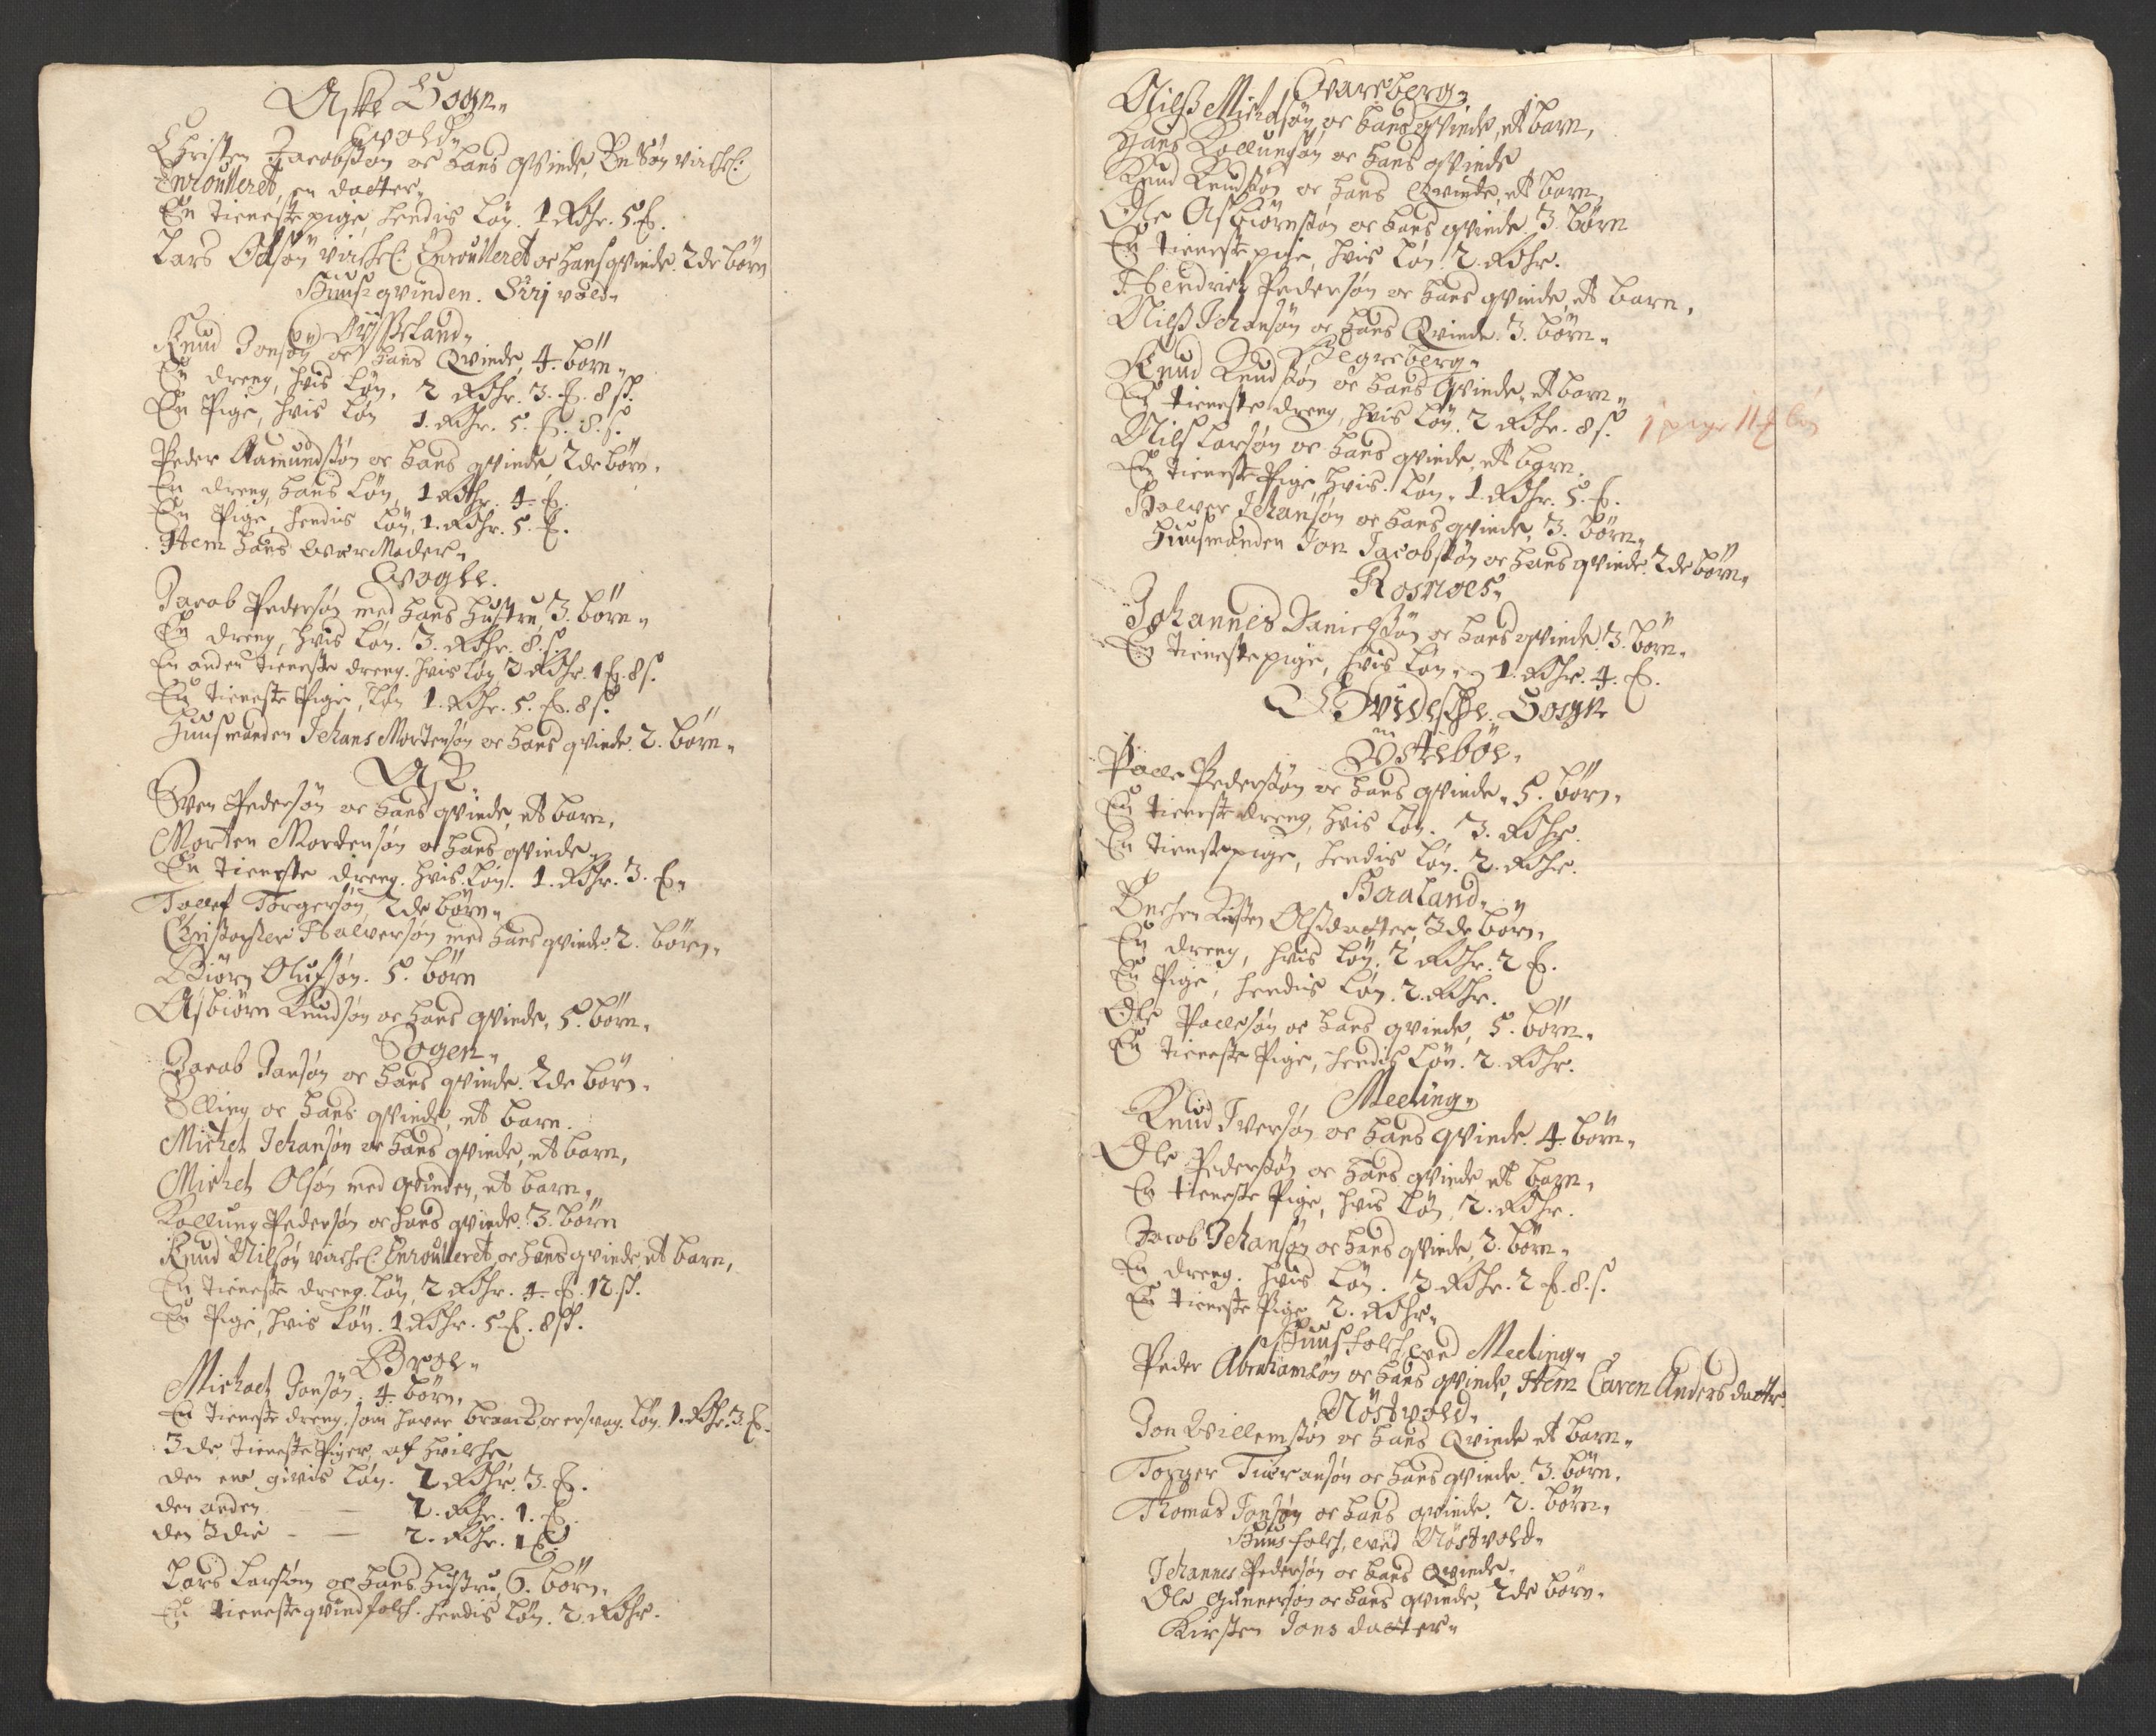 Aske Sogn
Evold
Christen Jacobsøn oc hans qvinde, En Søn virchel:
Enroulleret, en datter
En tieneste pige, hendis løn 1 Rdhr. 5 £.
Lars Olsøn virchel: Enroulleret oc hans qvinde. 2de børn
Huus qvinden. Sirj voed
Døysseland
Knud Jonsøn oc hans Qvinde, 4. børn
En dreng, hvis løn. 2 Rdhr. 3. £. 8 s.
En Pige, hvis løn 1. Rdhr. 5. £. 8. s.
Peder Aamundsøn oc hans qvinde, 2de børn.
En dreng, hans løn, 1 Rdhr. 4 £.
En Pige, hendis løn, 1. Rdhr. 5. £.
Item hans Vær Moder
Evogle.
Jacob Pedersøn med hans hustru, 3. børn
En dreng, hvis løn. 3. Rdhr. 8. s.
En anden tieneste dreng. hvis løn, 2 Rdhr. 1 £. 8 s.
En tieneste Pige, løn 1. Rdhr. 5. £. 8 s.
Huusmanden Johans Mortensøn oc hans qvinde. 2. børn
Ask
Sven Pedersøn oc hans qvinde, et barn.
Morten Mortensøn oc hans qvinde
En tieneste dreng. hvis løn. 1. Rdhr. 3. £
Tollef Torgersøn, 2de børn
Christopher Halversøn med hans qvinde. 2. børn
Biørn Olufsøn. 5. børn
Asbiørn Knudsøn oc hans qvinde, 5. børn.
Sogen
Jacob Jansøn oc hans qvinde. 2de børn.
Elling oc hans qvinde, et barn.
Michel Johansøn oc hans qvinde, et barn,
Michel Olsøn med qvinden, et barn
Kollung Pedersøn oc hans qvinde. 3. børn
Knud Nilsøn virchel: Enroulleret, oc hans qvinde, et barn,
En tieneste dreng. løn, 2 Rdhr. 4 £. 12 s.
En Pige, hvis løn. 1 Rdhr. 5 £. 8 s.
Broe
Michael Jonsøn. 4. børn,
En tieneste dreng. som haver braack oc er svag. løn 1. Rdhr. 3. £.
3de. tieneste Piger, af hvilche
den ene givis løn. 2 Rdhr. 3. £.
den anden — — 2. Rdhr. 1. £.
den 3die — — 2. Rdhr. 1 £.
Lars Larsøn oc hans hustru, 6. børn,
En tieneste qvindfolch. hendis løn. 2. Rdhr.
Qvarsberg
Nilss Michelsøn, oc hans qvinde, et barn,
Hans Kollungsøn oc hans qvinde
Knud Knudsøn oc hans Qvinde, et barn,
Ole Asbiørnsøn oc hans qvinde. 3. børn
En tieneste pige, hvis løn. 2. Rdhr.
Hendrich Pedersøn oc hans qvinde, et barn,
Nilss Johansøn oc hans Qvinde. 3. børn
Hegreberg
Knud Knudsøn oc hans Qvinde. et barn
En tieneste dreng, hvis løn. 2 Rdhr. 8 s.
1 pige 11 £ løn
Nils Larsøn oc hans qvinde, et barn.
En tieneste Pige, hvis løn. 1. Rdhr. 5. £.
Halver Johansøn oc hans qvinde, 3. børn
Huusmanden Jon Jacobsøn oc hans qvinde. 2de børn
Rosnoes
Johannes Danielssøn oc hans qvinde. 3. børn.
En tieneste pige, hvis løn. 1. Rdhr. 4. £.
Sogn
Østebøe
Palle Pedersøn oc hans qvinde. 5. børn.
En tieneste dreng, hvis løn. 3. Rdhr.
En tieneste pige, hendis løn. 2. Rdhr.
Haaland
Enchen Kirsten Olssdatter, 3de børn.
En dreng, hvis løn. 2 Rdhr. 2 £.
En Pige, hendis løn. 2. Rdhr.
Ole Pallesøn oc hans qvinde, 5. børn
En tieneste Pige, hendis løn. 2. Rdhr.
Meeling
Knud Iversøn oc hans qvinde. 4. børn
Ole Pedersøn oc hans qvinde et barn,
En tieneste Pige, hvis løn, 2. Rdhr.
Jacob Johansøn oc hans qvinde, 2. børn
En dreng. hvis løn. 3 Rdhr. 2 £. 8. s.
En tieneste Pige, 2. Rdhr.
Huusfolch, ved Meeling
Peder Abrahamsøn oc hans qvinde, Item Caren Andersdatter
Nöstvold
Jon Willemsøn oc hans Qvinde et barn
Torger Tioransøn oc hans qvinde. 3. børn.
Thomas Jonsøn oc hans qvinde. 2. børn,
Huusfolch, ved Nöstvold
Johannes Pedersøn oc hans Qvinde
Ole Gunnersøn oc hans qvinde, 2de børn.
Kirsten Jons datter